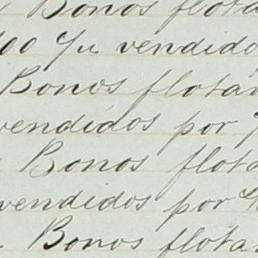 Bonos flota
100 % vendido
Bonos flotan
vendidos por
Bonos flota
vendidos por %
Bonos flotan